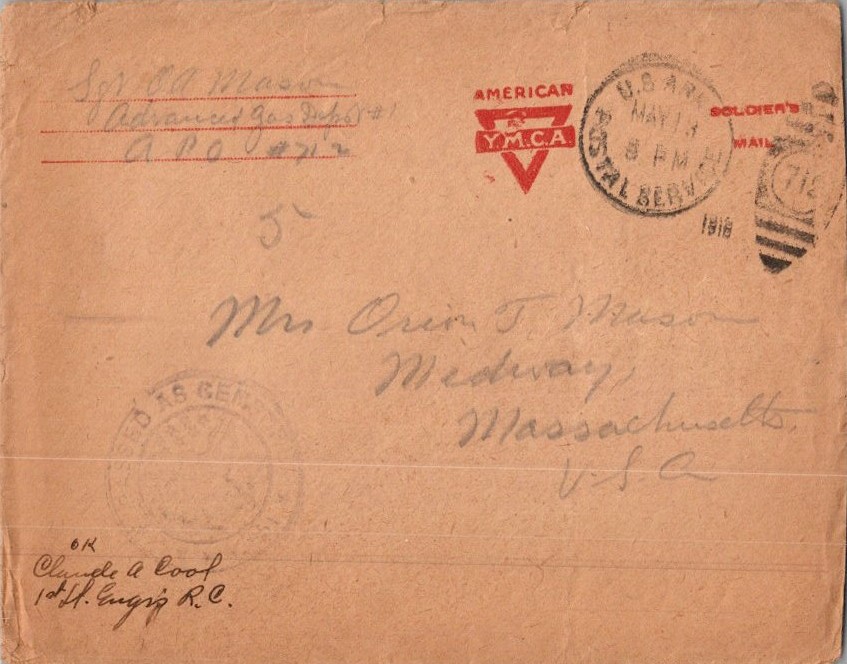 Sgt O A Mason
Advanced Gas Depot #1
A P O #712
AMERICAN
Y.M.C.A.
U.S ARMY
POSTAL SERVICE
MAY 13
8 PM
1918
SOLDIER'S
MAIL
712
5
Mrs Orion T. Mason
Medway,
Massachusetts.
U.S.A
PASSED AS CENSORED
OK
Claude A Cool
1st Lt. Engrs R.C.